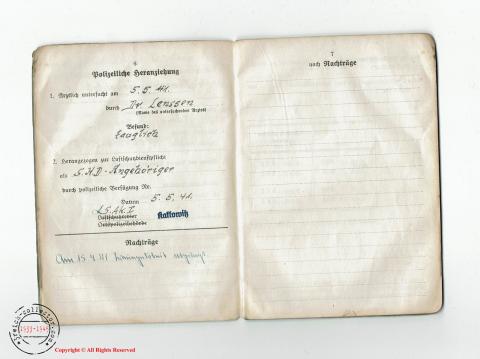 6
Polizeiliche Heranziehung
1. Ärztlich untersucht am 5.5.41.
durch Dr Lenssen
(Name des untersuchenden Arztes)
Befund:
tauglich
2. Herangezogen zur Luftschutzdienstpflicht
als S.H.D-Angehöriger
durch polizeiliche Verfügung Nr.
Datum 5.5.41.
Luftschutzrevier
Ortspolizeibehörde
Kattowitz
Nachträge
Am 15.4.41
7
noch Nachträge
1933-1945
Copyright © All Rights Reserved